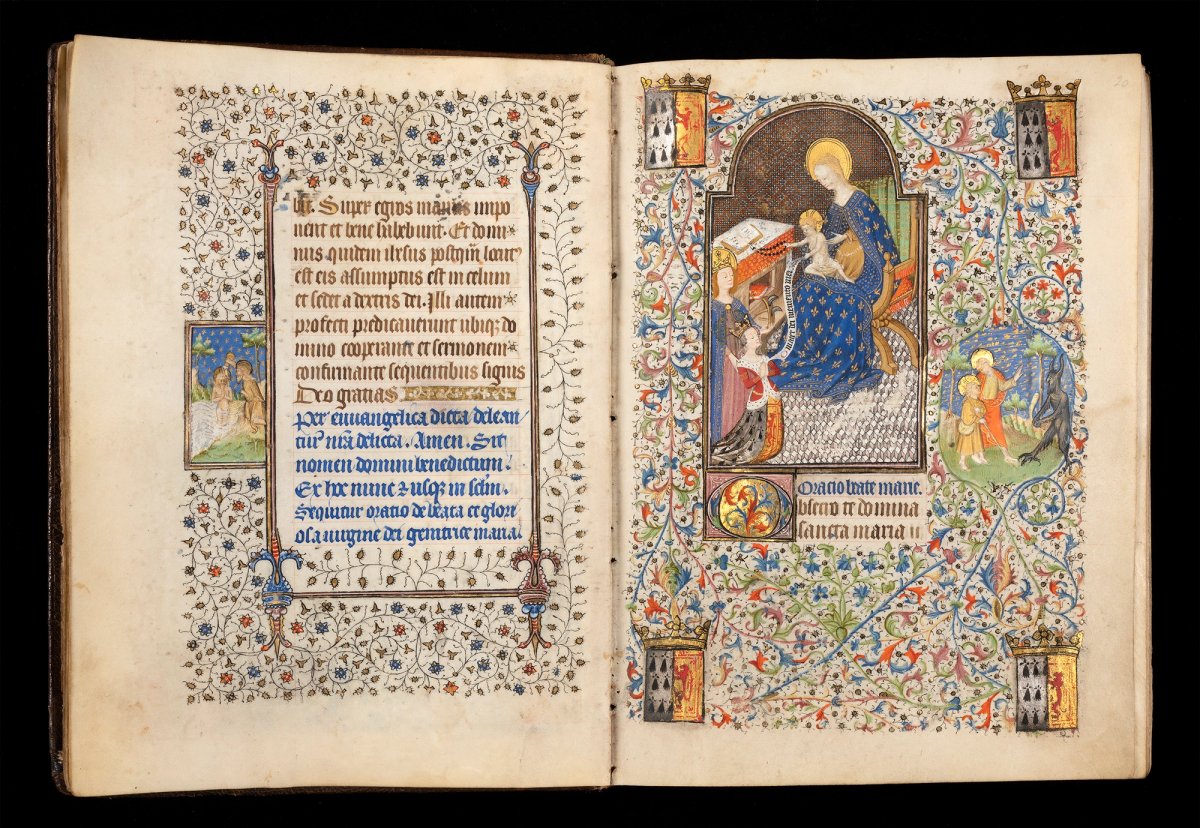 Super egros manus impo
nent et bene habebunt. Et domi
nus quidem ihesus postquam locutus
est eis assumptus est in celum
et sedet a dextris dei. Illi autem
profecti predicaverunt ubique do
mino cooperante et sermonem
confirmante sequentibus signis
Deo gratias
Per euuangelica dicta delean
tur nra delicta. Amen. Sit
nomen domini benedictum.
Ex hoc nunc & usque in sclm.
Sequitur oratio de beata et glori
osa uirgine dei genitrice maria.
mater dei memento mei
Oracio beate marie.
Obsecro te domina
sancta maria
20